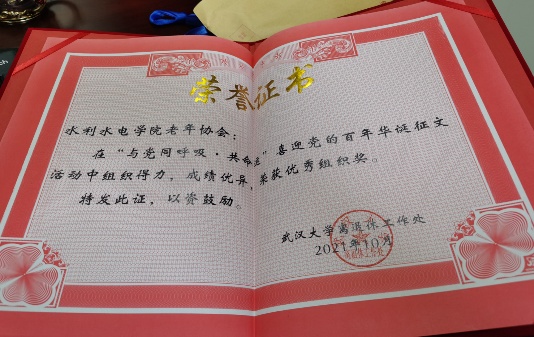 荣誉证书
水利水电学院老年协会：
在“与党同呼吸·共命运”喜迎党的百年华诞征文
活动中组织得力，成绩优异，荣获优秀组织奖。
特发此证，以资鼓励。
武汉大学离退休工作处
2021年10月